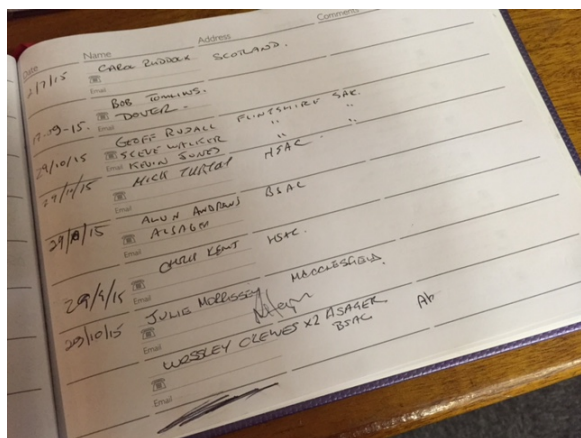 Date Name Address Comments
2/7/15 CAROL RUDDOCK SCOTLAND.
Email
BOB TOMLINS.
17-09-15. DOVER.
Email
GEOFF RUDALL FLINTSHIRE SAC.
29/10/15 STEVE WALKER " "
Email KEVIN JONES " "
MICK HSAC
Email
ALUN ANDREWS BSAC
ALSAGER
Email
CHRIS KENT HSAC
Email
JULIE MORRISSEY MACCLESFIELD.
29/10/15
Email
WESSLEY CLEWES X2 ASAGER
BSAC
Email